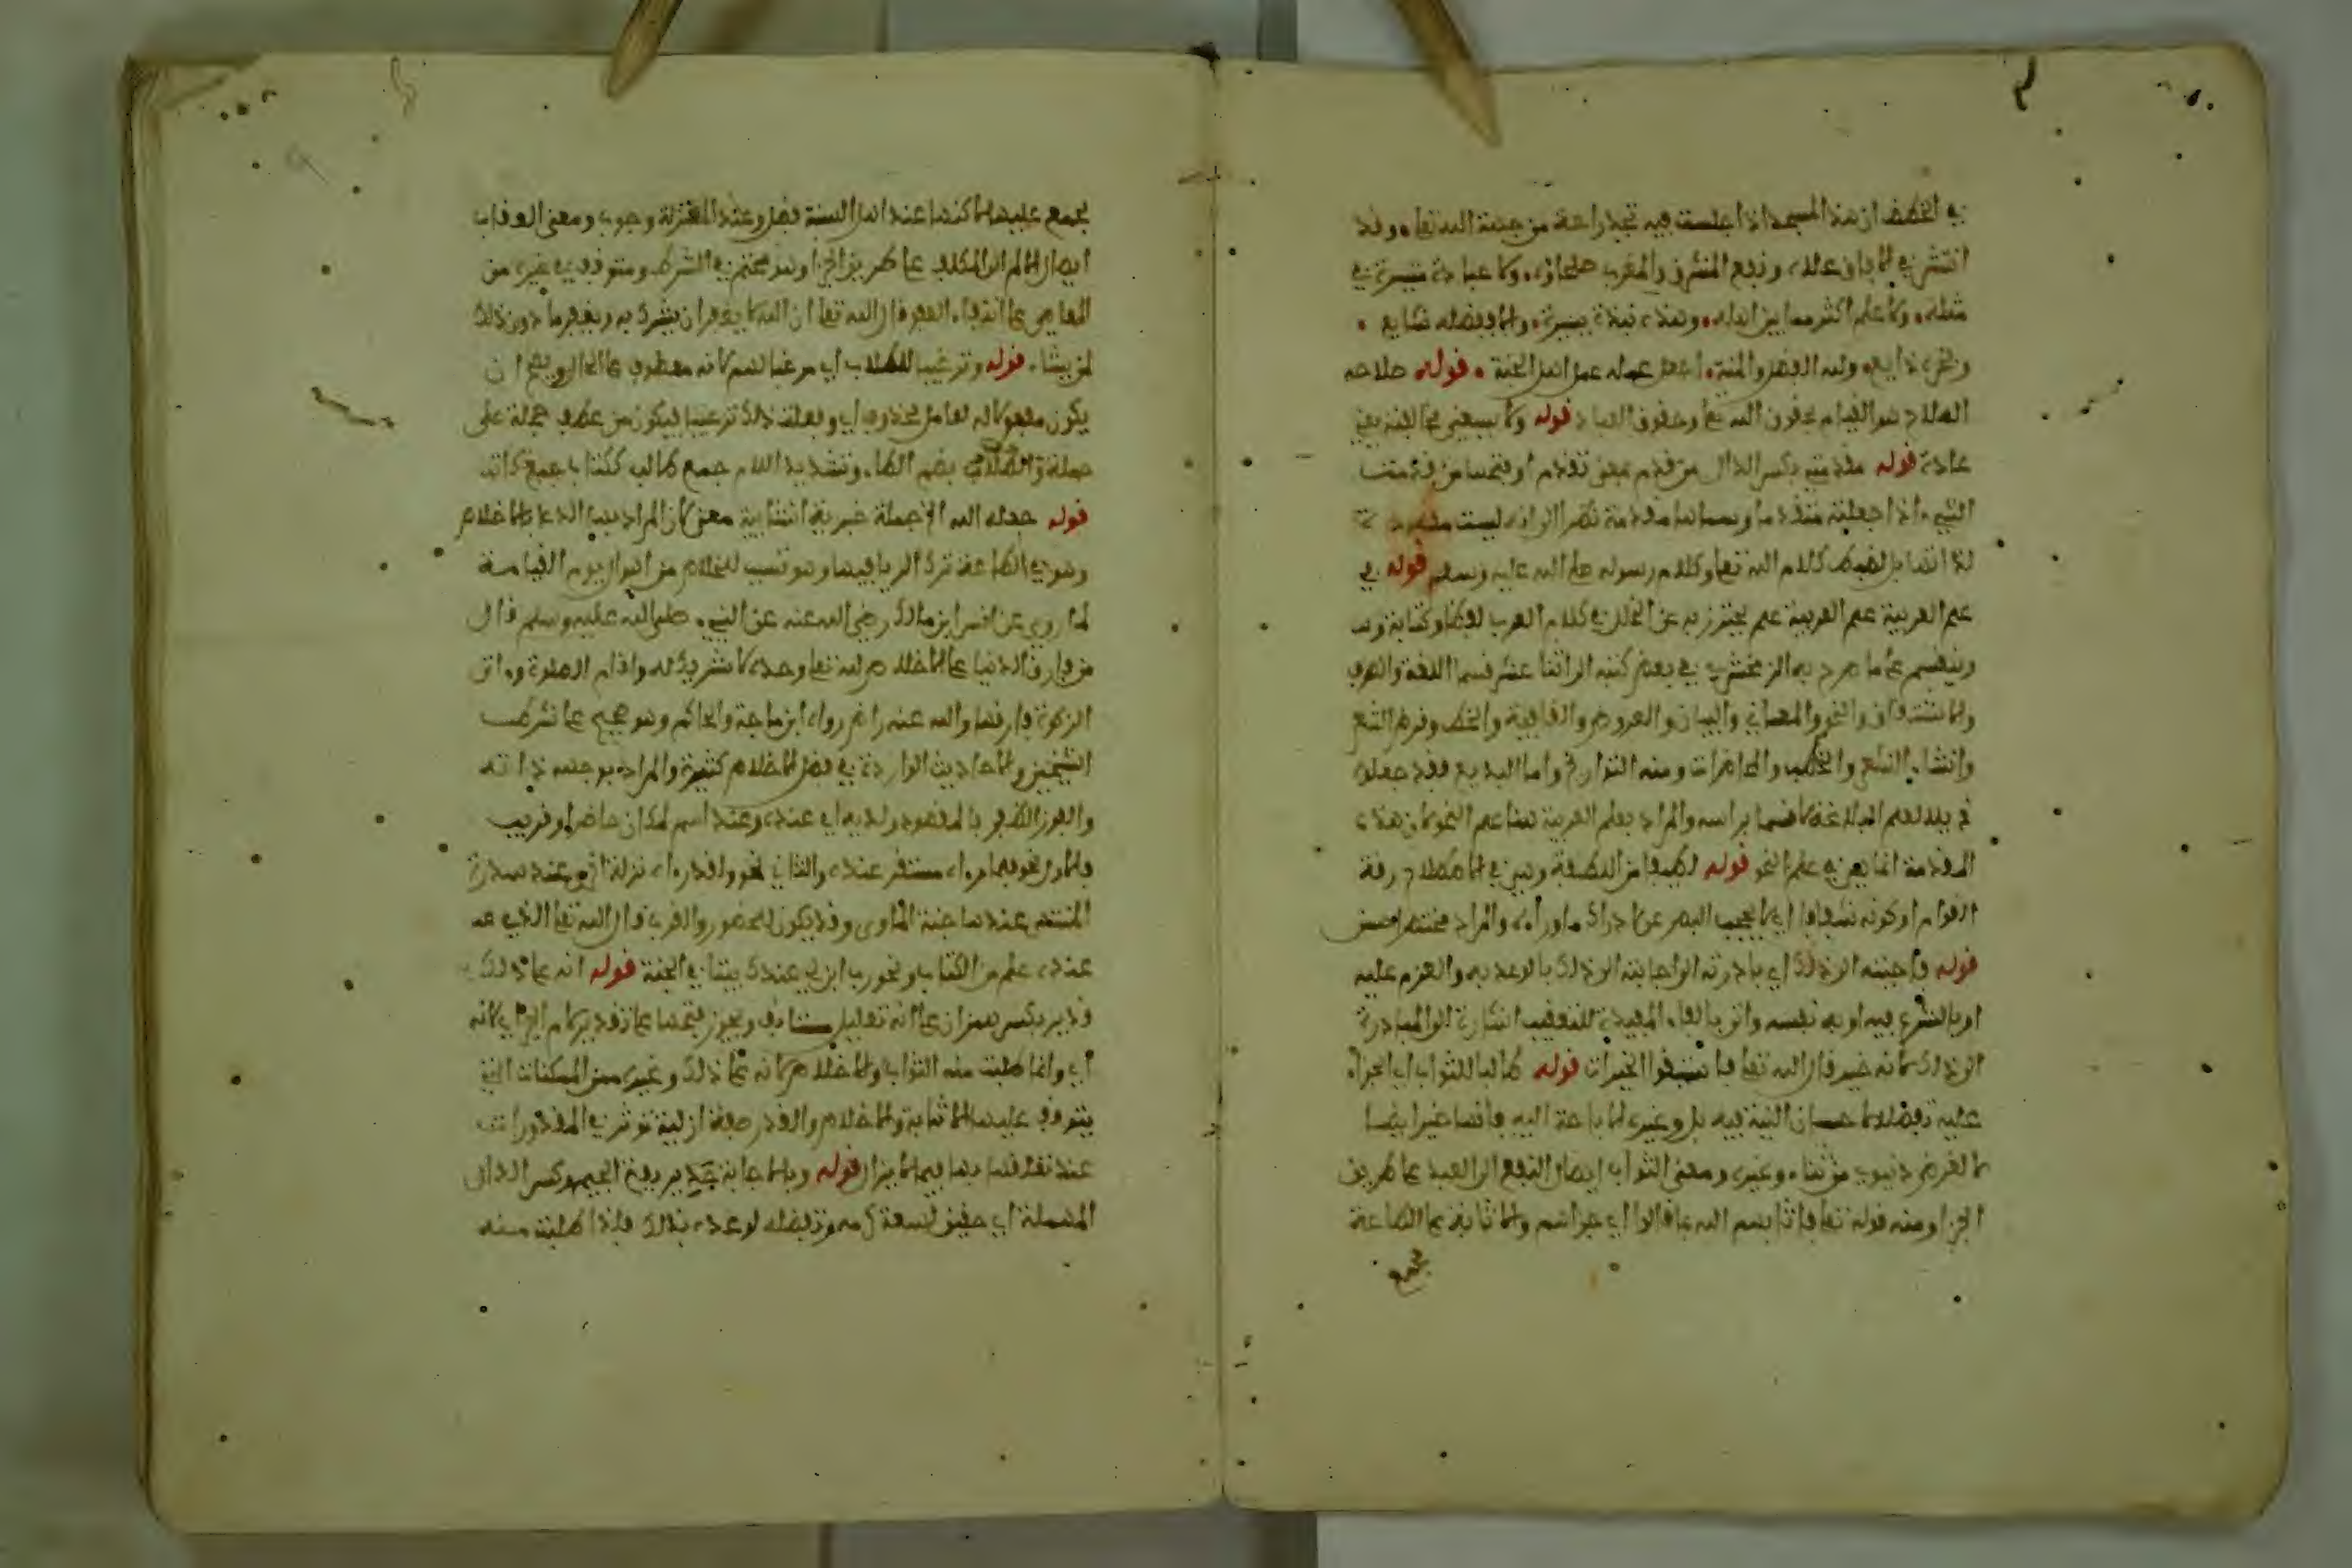 في الخطف ان هذا المسجد اذا جلست فيه تجد راحة من جهة الله تعالى وقد
انتشر في الافاق علاه ونفع المشرق والمغرب ولا عبادة متيسرة في
مثله ولا علم اكثر مما بين اهله وهذه نبذة يسيرة والا ففضله شايع
وله الفضل والمنة اجعل عمله عمل اهل الجنة قوله صلاحه
الصلاح هو القيام بحقوق الله تعالى وحقوق العباد قوله ولا يسعني مخالفته يعني
عادة قوله مقدمة بكسر الدال من قدم بمعنى تقدم او بفتحها من قدمت
الشيء اذا جعلته متقدما وسماها مقدمة نظرا الى انها ليست مقصودة
لذاتها بل لفهم كلام الله تعالى وكلام رسوله صلى الله عليه وسلم قوله في
علم العربية علم العربية علم يحترز به عن الخلل في كلام العرب لفظا وكتابة وهو
وينقسم على ما صرح به الزمخشري في بعض كتبه الى اثنا عشر قسما اللغة والصرف
والاشتقاق والنحو والمعاني والبيان والعروض والقافية والخط وقرض الشعر
وانشاء والخطب والمحاضرات ومنه التواريخ واما البديع فقد جعلوه
ذيلا لعلم البلاغة لا قسما براسه والمراد بعلم العربية هنا علم النحو لان هذه
المقدمة انما هي في علم النحو قوله لطيفا من اللطافة وهي في الاصل رقة
القوام او كونه شفافا اي لا يحجب البصر عن ادراك ما وراءه والمراد مختصر حسن
قوله فاجبته الى ذلك اي بادرته الى اجابته الى ذلك بالوعد به والعزم عليه
او بالشروع فيه او به نفسه واتى بالفاء المفيدة للتعقيب اشارة الى المبادرة
الى ذلك لانه خير قال الله تعالى فاستبقوا الخيرات قوله طالبا للثواب اي الجزاء
عليه تفضلا لاحسان النية فيه بل وغيره
لا لغرض دنيوي من ثناء وغيره ومعنى الثواب ايصال النفع الى العبد على طريق
الجزا ومنه قوله تعالى فاثابهم الله بما قالوا اي جزاهم والاثابة على الطاعة
بجمع
بجمع عليها لاكنها عند اهل السنة فضل وعند المعتزلة وجوب ومعنى العقاب
ايصال الالم الى المكلف على طريق الجزا وهو محتم في الشرك ومتوقف في غيره من
المعاصي على انتفاء العفو قال الله تعالى ان الله لا يغفر ان يشرك به ويغفر ما دون ذلك
لمن يشاء قوله وترغيبا للطلاب اي مرغبا لهم لانه معطوف على الحال ويصح ان
يكون مفعولا له لعامل محذوف اي وفعلت ذلك ترغيبا فيكون من عطف جملة على
جملة والطلاب بضم الطاء وتشديد اللام جمع طالب ككتاب جمع كاتب
قوله جعله الله الخ جملة خبرية انشائية معنى لان المراد بها الدعا بالاخلاص
وهو في الطاعة ترك الريا فيها وهو سبب للخلاص من اهوال يوم القيامة
لما روي عن انس ابن مالك رضي الله عنه عن النبي صلى الله عليه وسلم قال
من فارق الدنيا على الاخلاص لله تعالى وحده لا شريك له واقام الصلوة واتى
الزكوة فارقها والله عنه راض رواه ابن ماجة والحاكم وهو صحيح على شرط
الشيخين والاحاديث الواردة في فضل الاخلاص كثيرة والمراد بوجهه ذاته
والفوز الظفر بالمقصود ولديه اي عنده وعند اسم لمكان حاضر او قريب
فالاول نحو فلما رءاه مستقر عنده والثاني نحو ولقد رءاه نزلة اخرى عند سدرة
المنتهى عندها جنة الماوى وقد يكون للحضور والقرب قال الله تعالى الذي
عنده علم من الكتاب ونحو رب ابن لي عندك بيتا في الجنة قوله انه على ذلك
قدير بكسر همز ان على انه تعليل مستانف ويجوز فتحها على تقدير لام الجر اي لانه
اي وانما طلبت منه الثواب والاخلاص لانه على ذلك وغيره من الممكنات التي
يتوقف عليها الاثابة والاخلاص والقدرة صفة ازلية توثر في المقدورات
عند تعلقها بها فيما لا يزال قوله وبالاجابة جدير بفتح الجيم وكسر الدال
المهملة اي حقيق لسعة كرمه وتفضله لوعده بذلك فلذا طلبت منه